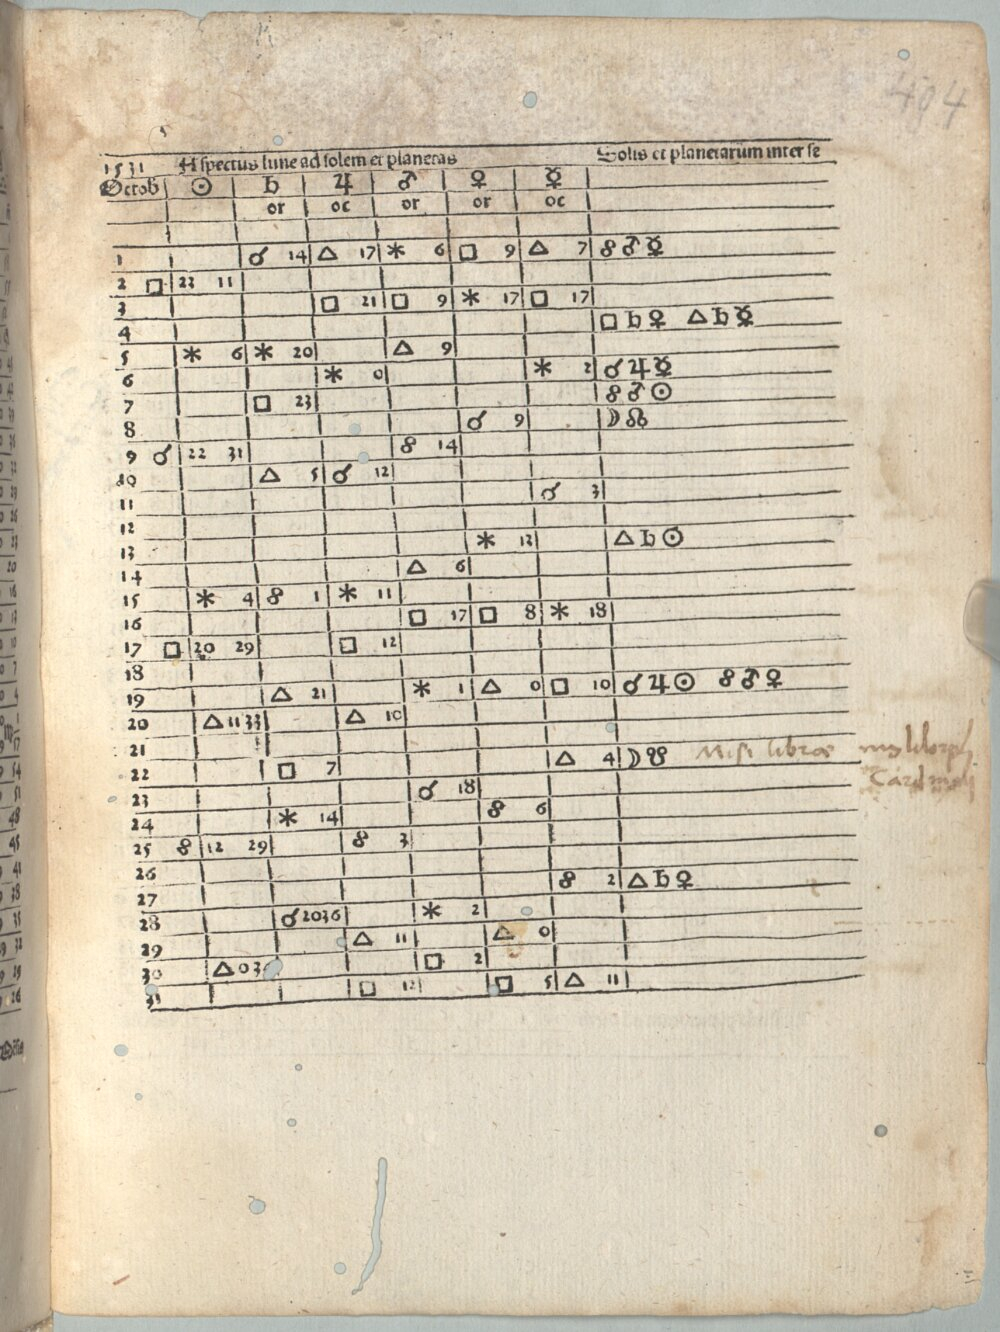 494
1531 Aspectus lune ad solem et planetas Solis et planetarum inter se
Octob ☉ ♄ ♃ ♂ ♀ ☿
or oc or or oc
1 ☌ 14 △ 17 ✶ 6 □ 9 △ 7 ☍ ♂ ☿
2 □ 22 11
3 □ 21 □ 9 ✶ 17 □ 17
4 □ ♄ ♀ △ ♄ ☿
5 ✶ 6 ✶ 20 △ 9
6 ✶ 0 ✶ 2 ☌ ♃ ☿
7 □ 23 ☍ ♂ ☉
8 ☌ 9 ☽ ☊
9 ☌ 22 31 ☍ 14
10 △ 5 ☌ 12
11 ☌ 3
12
13 ✶ 12 △ ♄ ☉
14 △ 6
15 ✶ 4 ☍ 1 ✶ 11
16 □ 17 □ 8 ✶ 18
17 □ 20 29 □ 12
18
19 △ 21 ✶ 1 △ 0 □ 10 ☌ ♃ ☉ ☍ ♂ ♀
20 △ 11 33 △ 10
21
22 □ 7 △ 4 ☽ ☋ Misi libros
23 ☌ 18
24 ✶ 14 ☍ 6
25 ☍ 12 29 ☍ 3
26 ☍ 2 △ ♄ ♀
27
28 ☌ 20 36 ✶ 2
29 △ 11 △ 0
30 △ 0 3 □ 2
31 □ 12 □ 5 △ 11